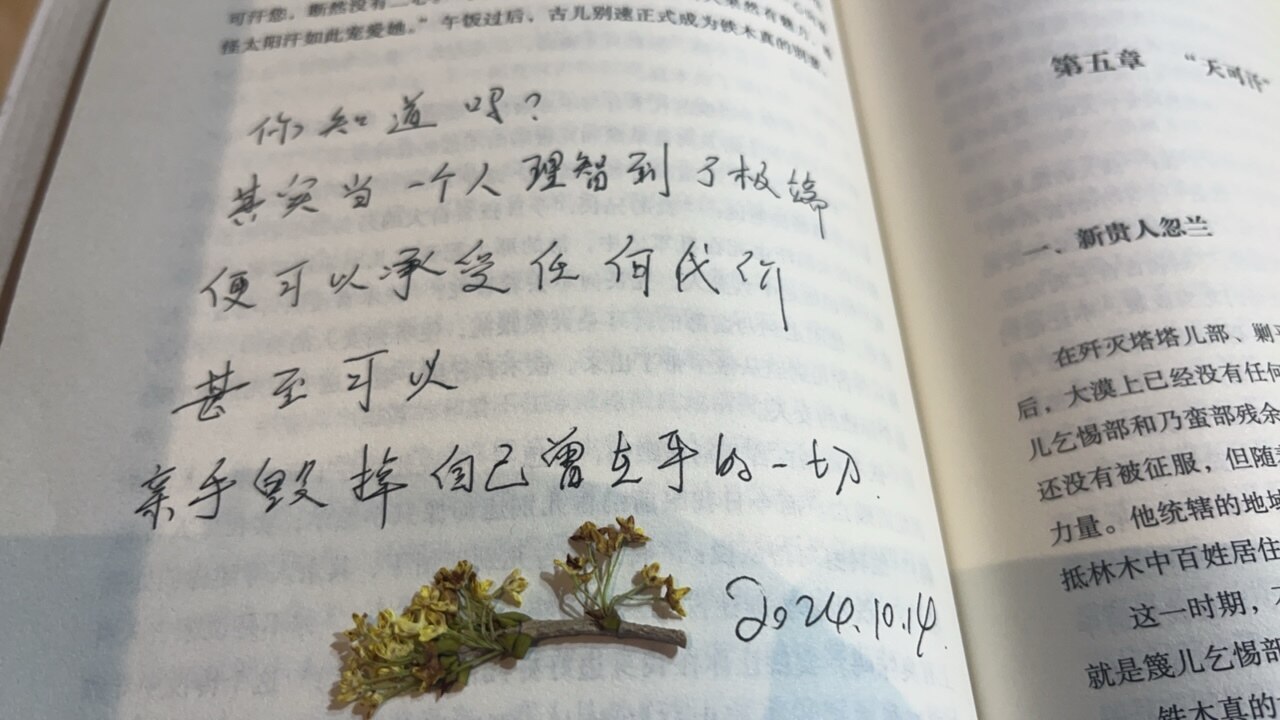 可汗您，断然没有二心
怪太阳汗如此宠爱她。”午饭过后，古儿别速正式成为铁木真的别妻。
你知道吗？
其实当一个人理智到了极端
便可以承受任何代价
甚至可以
亲手毁掉自己曾在乎的一切.
2024.10.14
第五章 “天可汗”
一、新贵人忽兰
在歼灭塔塔儿部、剿
后，大漠上已经没有任何
儿乞惕部和乃蛮部残余
还没有被征服，但随着
力量。他统辖的地域
抵林木中百姓居住
这一时期，
就是篾儿乞惕部
铁木真的